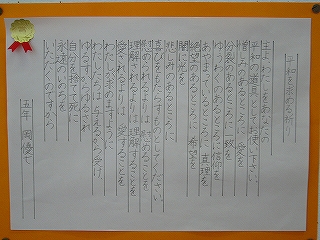 平和を求める祈り
主よわたしをあなたの
平和の道具としてお使い下さい。
憎しみのあるところに 愛を
分裂のあるところに 一致を
ゆうわくのあるところに 信仰を
あやまっているところに 真理を
絶望のあるところに 希望を
闇に光を
悲しみのあるところに
喜びをもたらすものとしてください
慰められるよりは 慰めることを
理解されるよりは 理解することを
愛されるよりは 愛することを
わたしが求めますように
わたしたちは与えるから受け
ゆるすからゆるされ
自分を捨てて死に
永遠のいのちを
いただくのですから
五年 岡